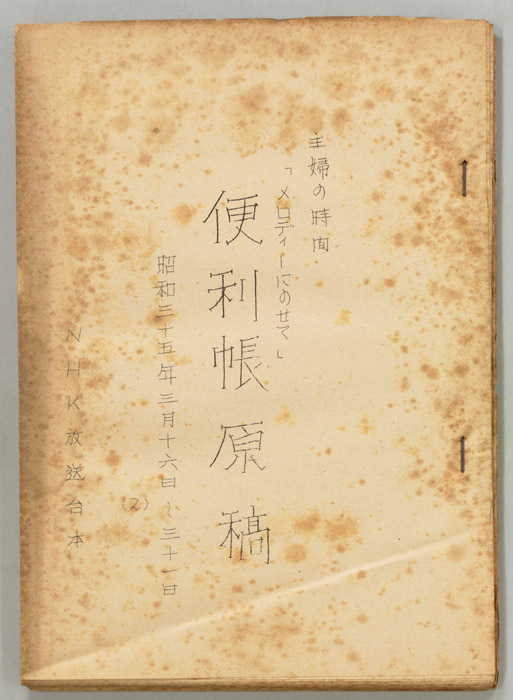 主婦の時間
「メロディーにのせて」
便利帳原稿
昭和三十五年三月十六日～三十一日
(2)
NHK放送台本